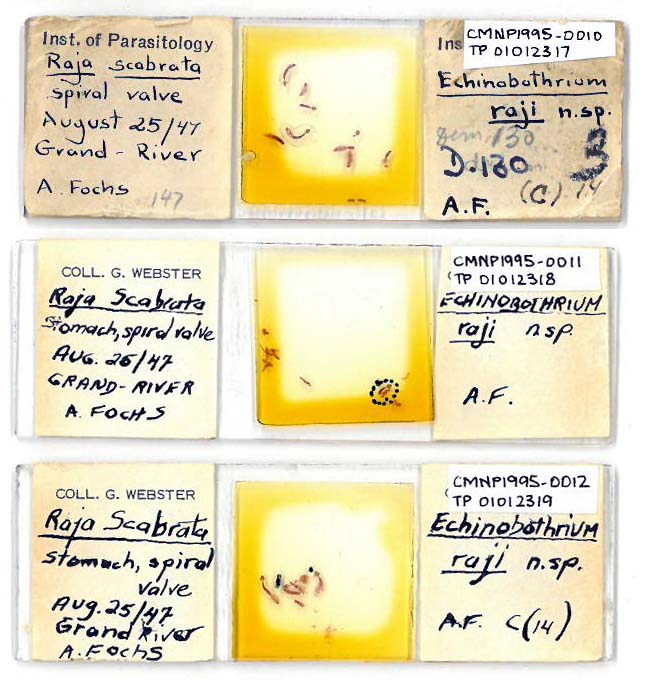 Inst. of Parasitology
Raja scabrata
spiral valve
August 25/47
Grand - River
A. Fochs
147
CMNP1995-0010
TP 01012317
Ins
Echinobothrium
raji n.sp.
130
D.130
(C) 14
A.F.
COLL. G. WEBSTER
Raja Scabrata
Stomach, spiral valve
AUG. 25/47
GRAND-RIVER
A. FOCHS
CMNP1995-0011
TP 01012318
ECHINOBOTHRIUM
raji n.sp.
A.F.
COLL. G. WEBSTER
Raja Scabrata
Stomach, spiral
valve
Aug. 25/47
Grand River
A. Fochs
CMNP1995-0012
TP 01012319
Echinobothrium
raji n.sp.
A.F. C(14)